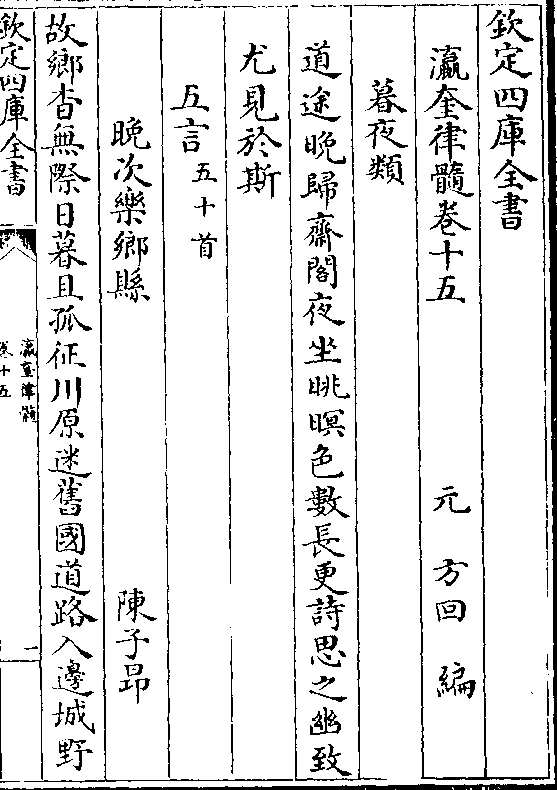 欽定四庫全書
瀛奎律髓卷十五
元 方回 編
暮夜類
道途晚歸齋閣夜坐眺暝色數長更詩思之幽致
尤見於斯
五言 五十首
晚次樂鄉縣 陳子昂
故鄉杳無際日暮且孤征川原迷舊國道路入邊城野
欽定四庫全書
瀛奎律髓
卷十五
一